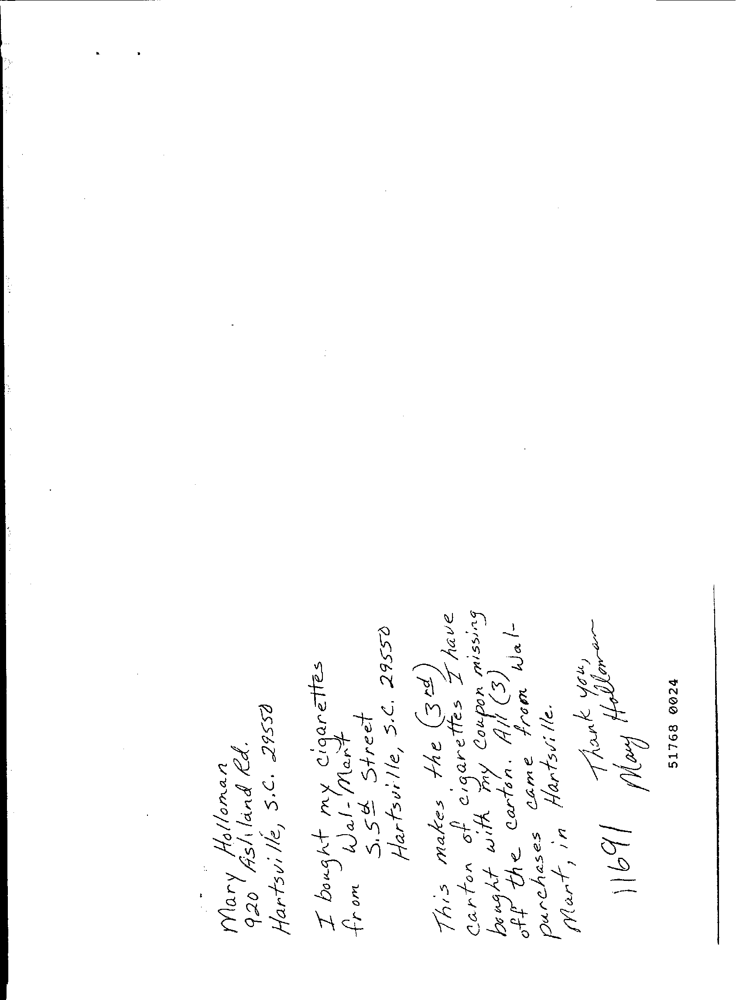 Mary Holloman
920 Ashland Rd.
Hartsville, S.C. 29550
I bought my cigarettes
from Wal-Mart
S. 5th Street
Hartsville, S.C. 29550
This makes the (3rd)
carton of cigarettes I have
bought with my coupon missing
off the carton. All (3)
purchases came from Wal-
Mart, in Hartsville.
Thank you,
Mary Holloman
11691
51768 0024